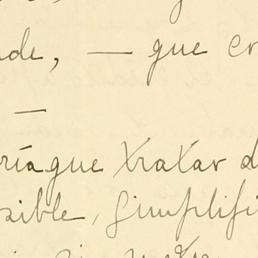 de, — que e
—
ría que tratar d
sible, simplifi